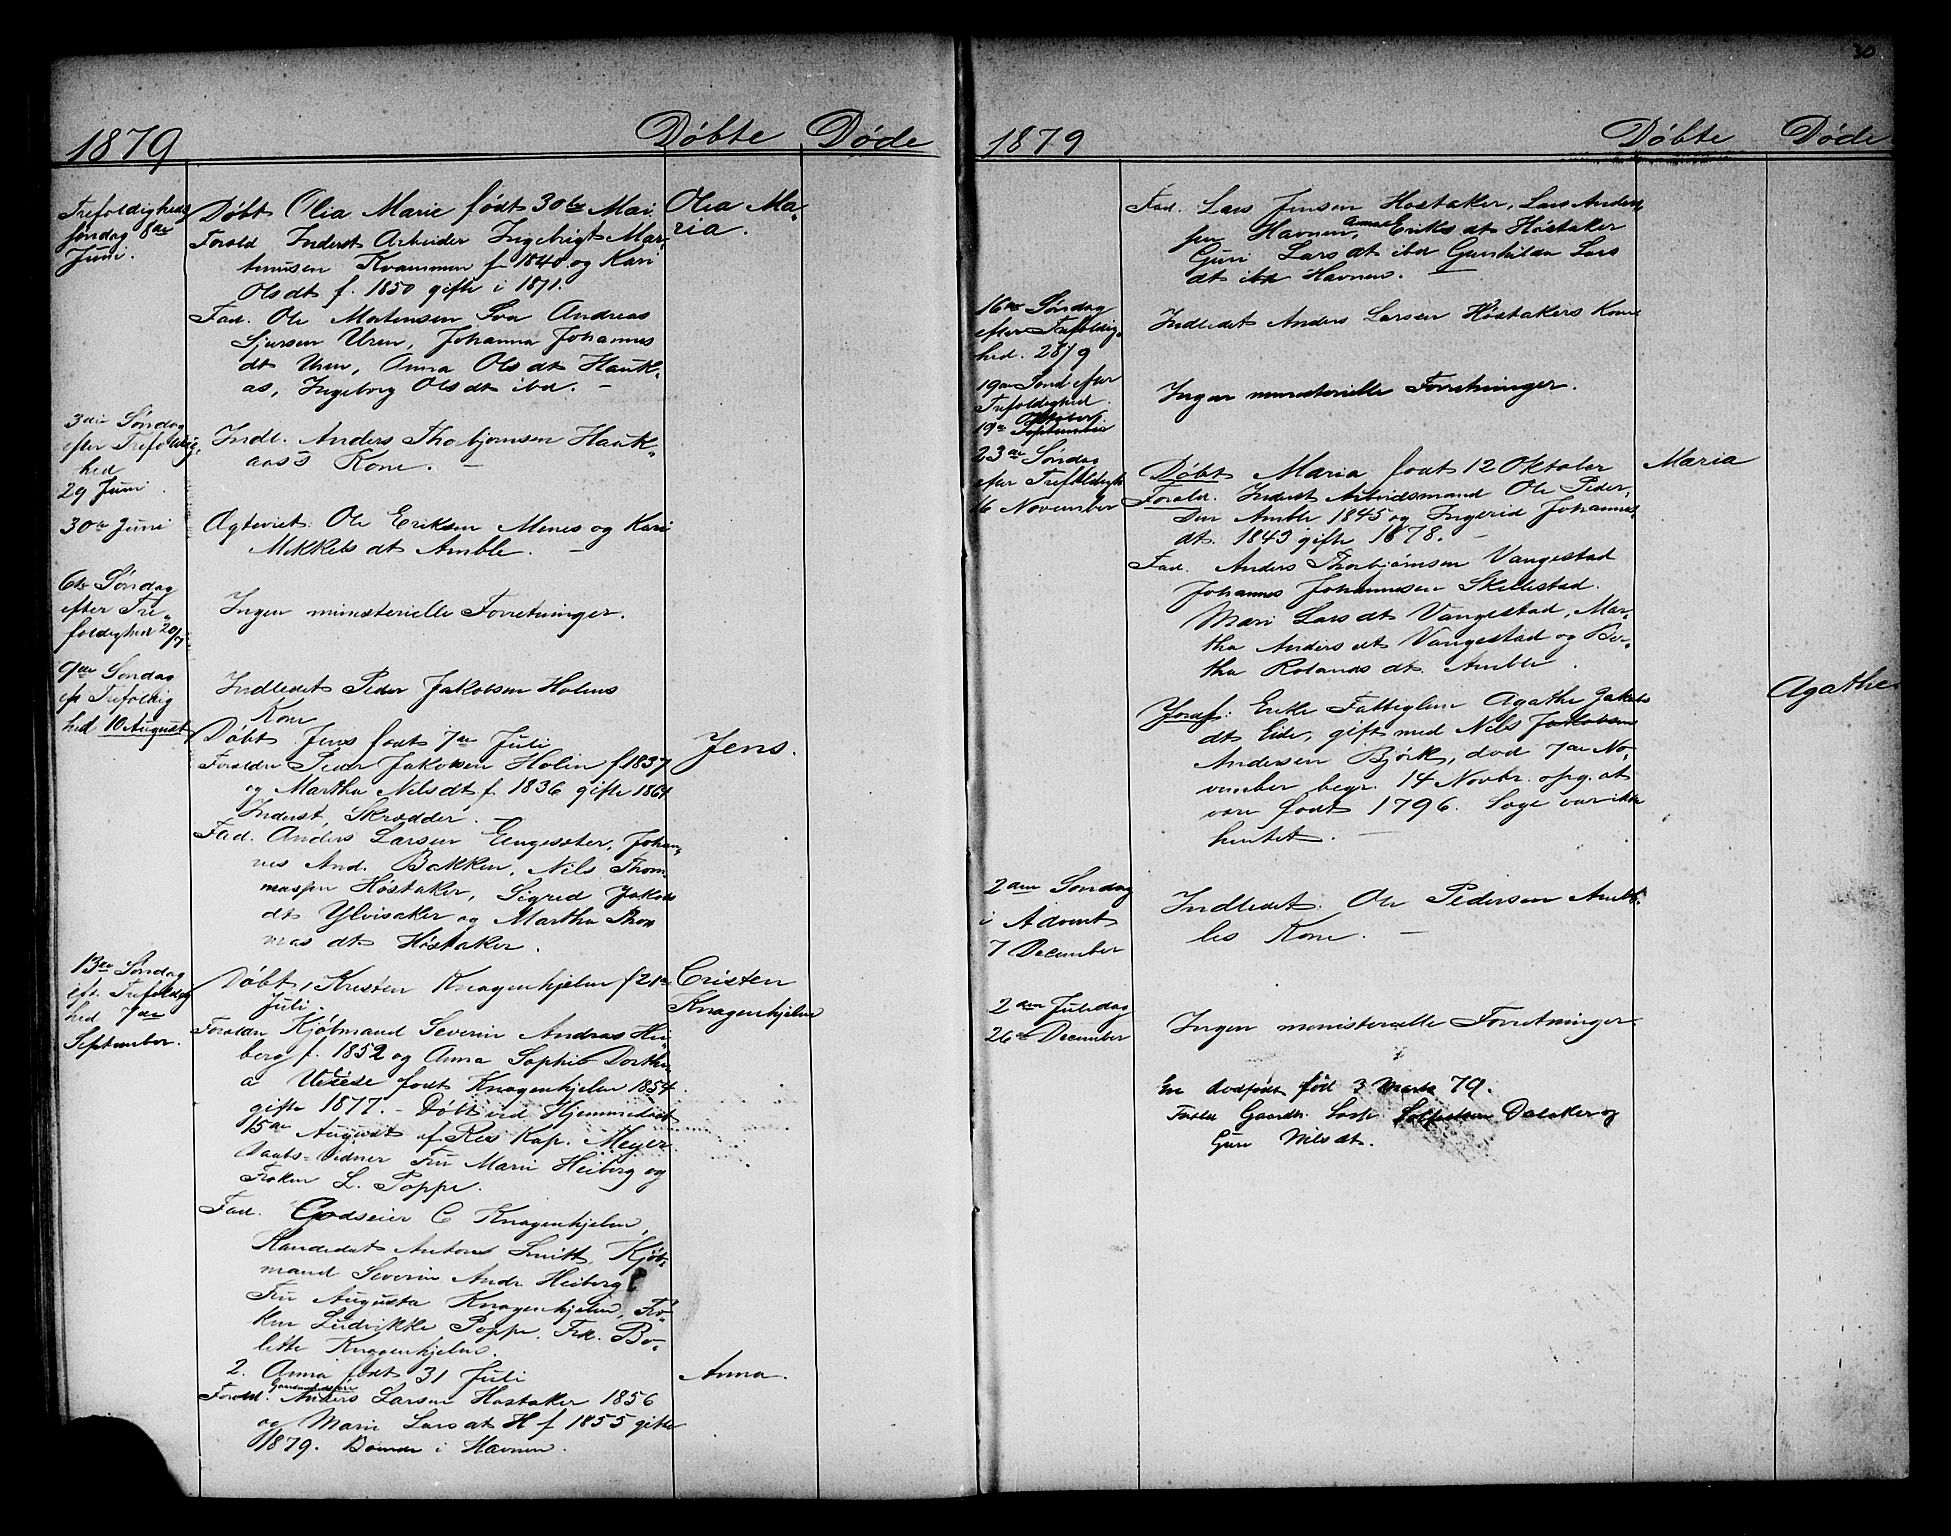 1879 Döbte Döde
Trefoldigheds
söndag 8de
Juni.
Döbt Olia Marie födt 30te Mai
Forold Inderst Arbeider Ingebrigt Mar-
tinusen Kvammen f. 1840 og Kari
Olsdt f. 1850 gifte i 1871.
Fad. Ole Mortensen Andreas
Sjursen Uren, Johanna Johannes
dt Uren, Anna Olsdt Hauk-
ås, Ingeborg Olsdt ibd. –
Olea Ma-
ria.
3die Söndag
efter Trefoldig-
hed
29 Juni
Indl. Anders Thorbjørnsen Hauk-
aas's Kone. –
30te Juni
Ægteviet: Ole Eriksen Menes og Kari
Mikkelsdt Amble. –
6te Söndag
efter Tre-
foldighed 20/7
Ingen ministerielle Forretninger.
9de Søndag
eft Trefoldig
hed 10 August
Indledet Peder Jakobsen Holens
Kone
Döbt Jens födt 7de Juli
Foreldre Peder Jakobsen Holen f 1837
og Martha Nilsdt f. 1836 gifte 1864
Inderst, Skrædder.
Fad. Anders Larsen Engesæter, Johan-
nes And. Bakken, Nils Thom-
massen Høstaker, Sigrid Jakobs
dt Ylvisaker og Martha Thom
mas dt Høstaker.
Jens.
13de Söndag
eft. Trefoldig
hed 7de
September.
Döbt, Kristen Knagenhjelm f 21de
Juli
Foreldre Kjöbmand Severin Andreas Hei-
berg f. 1852 og Anna Sophie Dorthe
a födt Knagenhjelm 1854
gifte 1877. – Döbt ved Hjemmedaab
15de August af Res. Kap. Meyer
Daabs-Vidner Fru Marie Heiberg og
Frøken L. Poppe.
Fad. Godseier C Knagenhjelm,
Kandidat Anton Smitt, Kjöb-
mand Severin Andr. Heiberg
Fru Augusta Knagenhjelm, Frø-
ken Ludvikke Poppe. Frk. Bo-
lette Knagenhjelm.
Cristen
Knagenhjelm
2. Anna födt 31 Juli
Gaardmandsfore
Forold. Anders Larsen Høstaker 1856
og Marie Larsdt H f 1855 gifte
1879. Boende i Havnen.
Anna.
30
1879 Döbte Döde
Fad. Lars Jensen Høstaker, Lars Anders-
sen Havnen, Anna Eriksdt Høstaker
Guri Larsdt ibd Gunhilda Lars
dt ibd Havnen. –
16de Søndag
efter Trefoldig-
hed. 28/9
Indledet Anders Larsen Høstakers Kone
19de Sönd efter
Trefoldighed.
Oktober
19de September
Ingen ministerielle Forretninger.
23de Søndag
efter Trefoldigh
16 November
Döbt Maria födt 12 Oktober
Forold. Inderst Arbeidsmand Ole Peder-
sen Amble 1845 og Ingerid Johannes
dt. 1843 gifte 1878. –
Fad. Anders Thorbjørnsen Vangestad
Johannes Johannesen Skillestad.
Mari Larsdt Vangestad, Mar-
tha Andersdt Vangestad og Ber-
tha Rolandsdt. Amble.
Maria
Jordf: Enke Fattiglem Agathe Jakobs
dt Eide, gift med Nils Jakobsen
Andersen Björk, död 7de No-
vember begr. 14 Novbr. opg. at
være födt 1796. Læge var ikke
hentet. –
Agathe
2den Søndag
i Advent
7 December
Indledet: Ole Pedersen Amb-
les Kone. –
2den Juledag
26de December
Ingen ministerielle Forretninger.
En dødfødt föd 3 Marts 79.
Forold Gaardbr. Dalaker og
Guri Nilsdt.